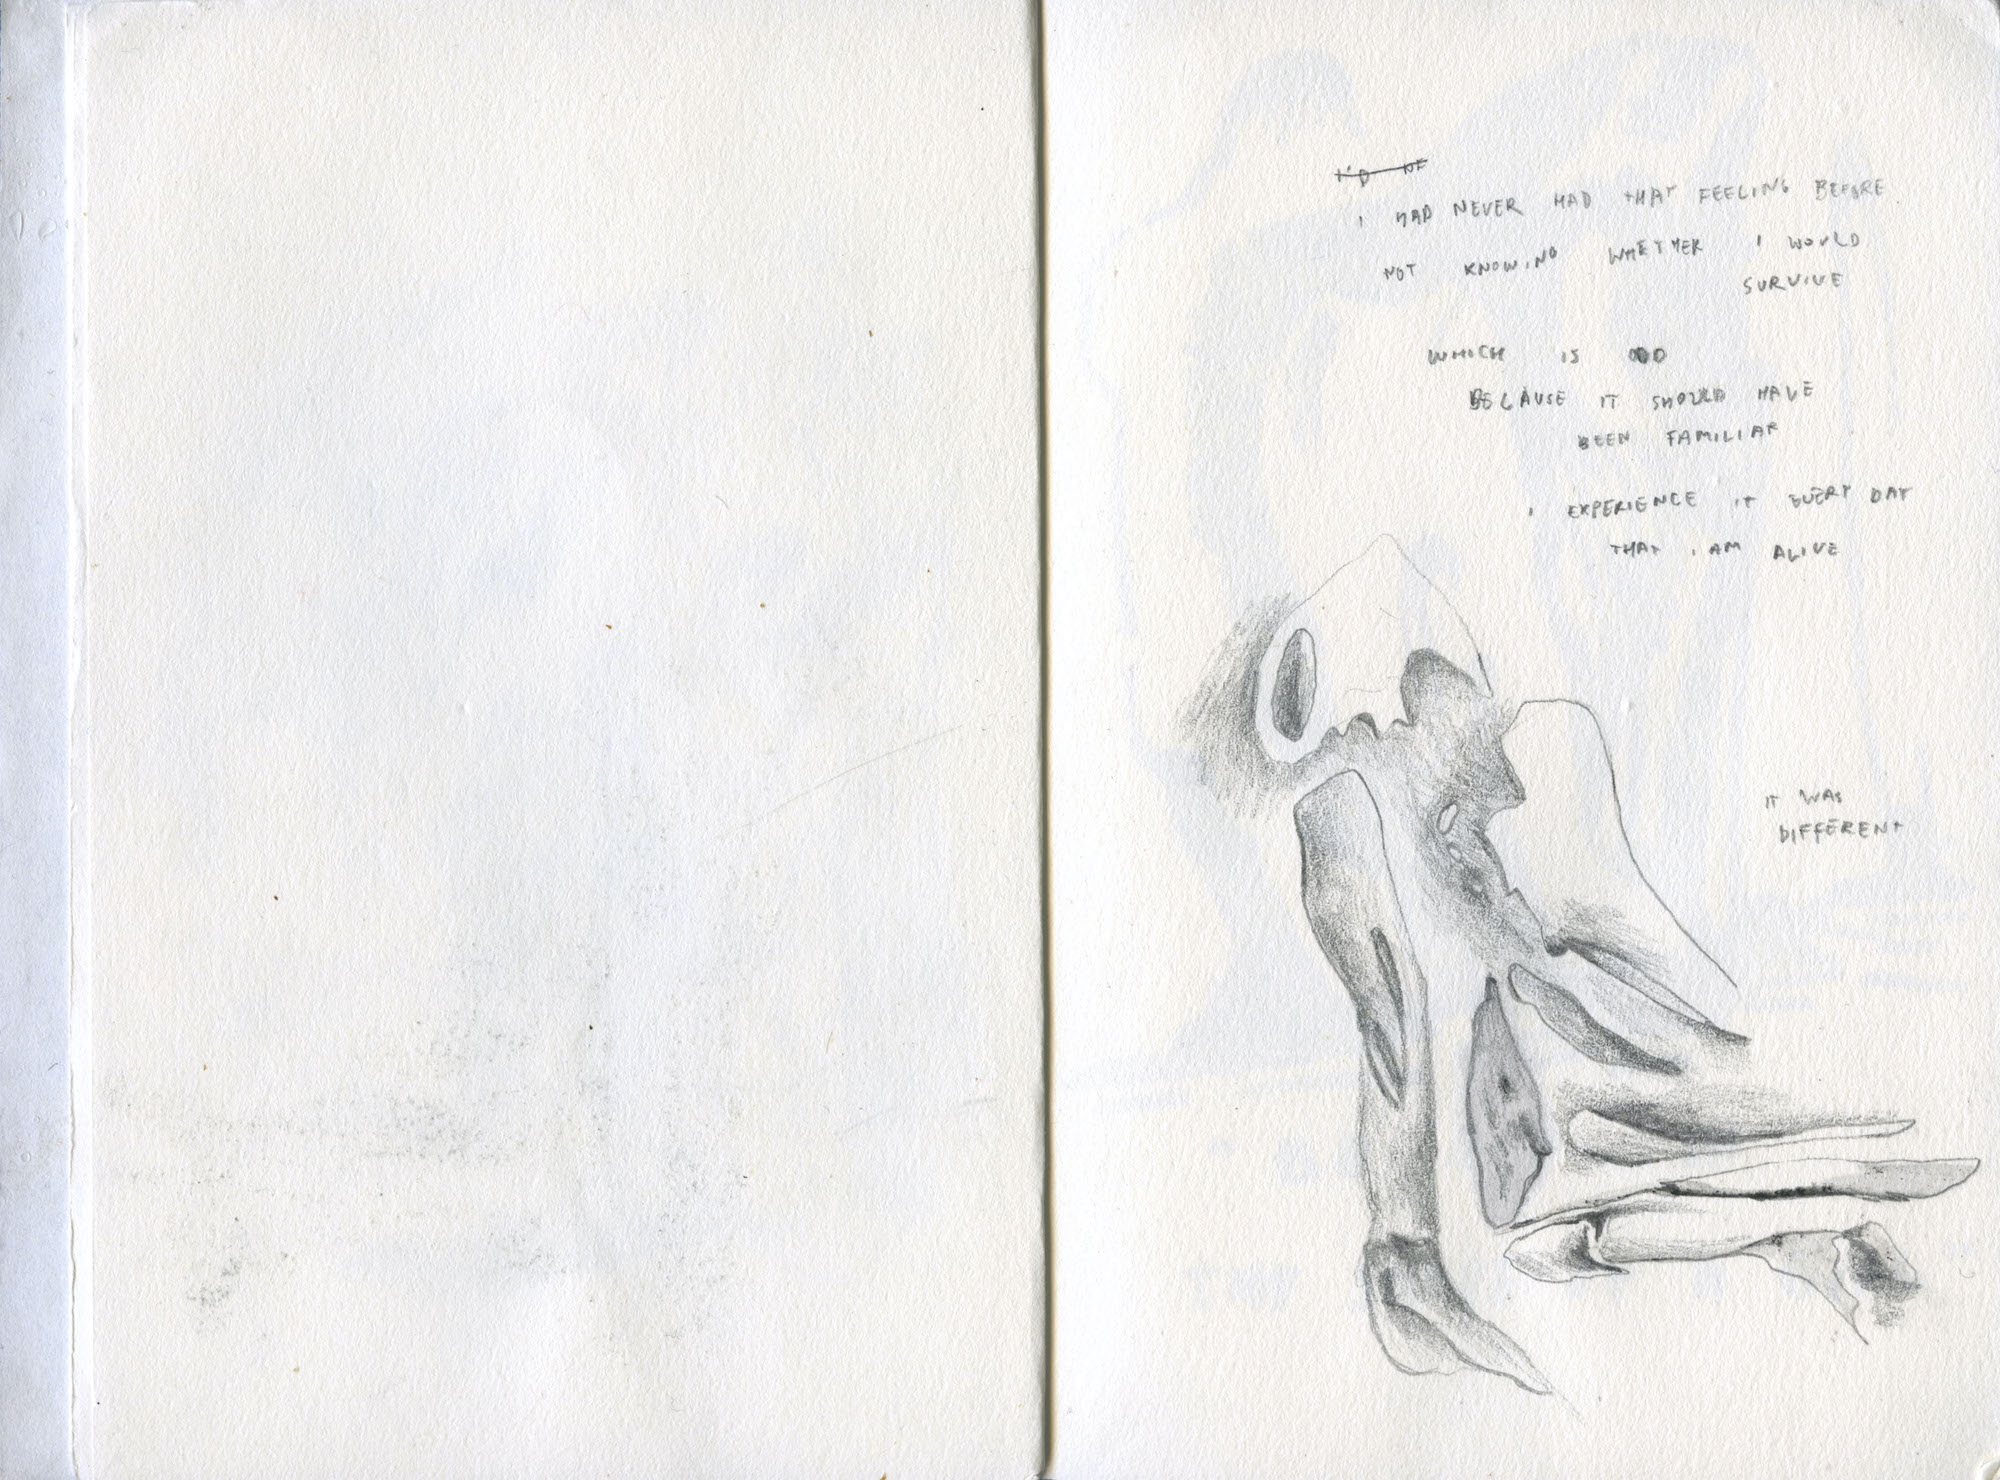 I'D NE
I HAD NEVER HAD THAT FEELING BEFORE
NOT KNOWING WHETHER I WOULD
SURVIVE
WHICH IS ODD
BECAUSE IT SHOULD HAVE
BEEN FAMILIAR
I EXPERIENCE IT EVERY DAY
THAT I AM ALIVE
IT WAS
DIFFERENT